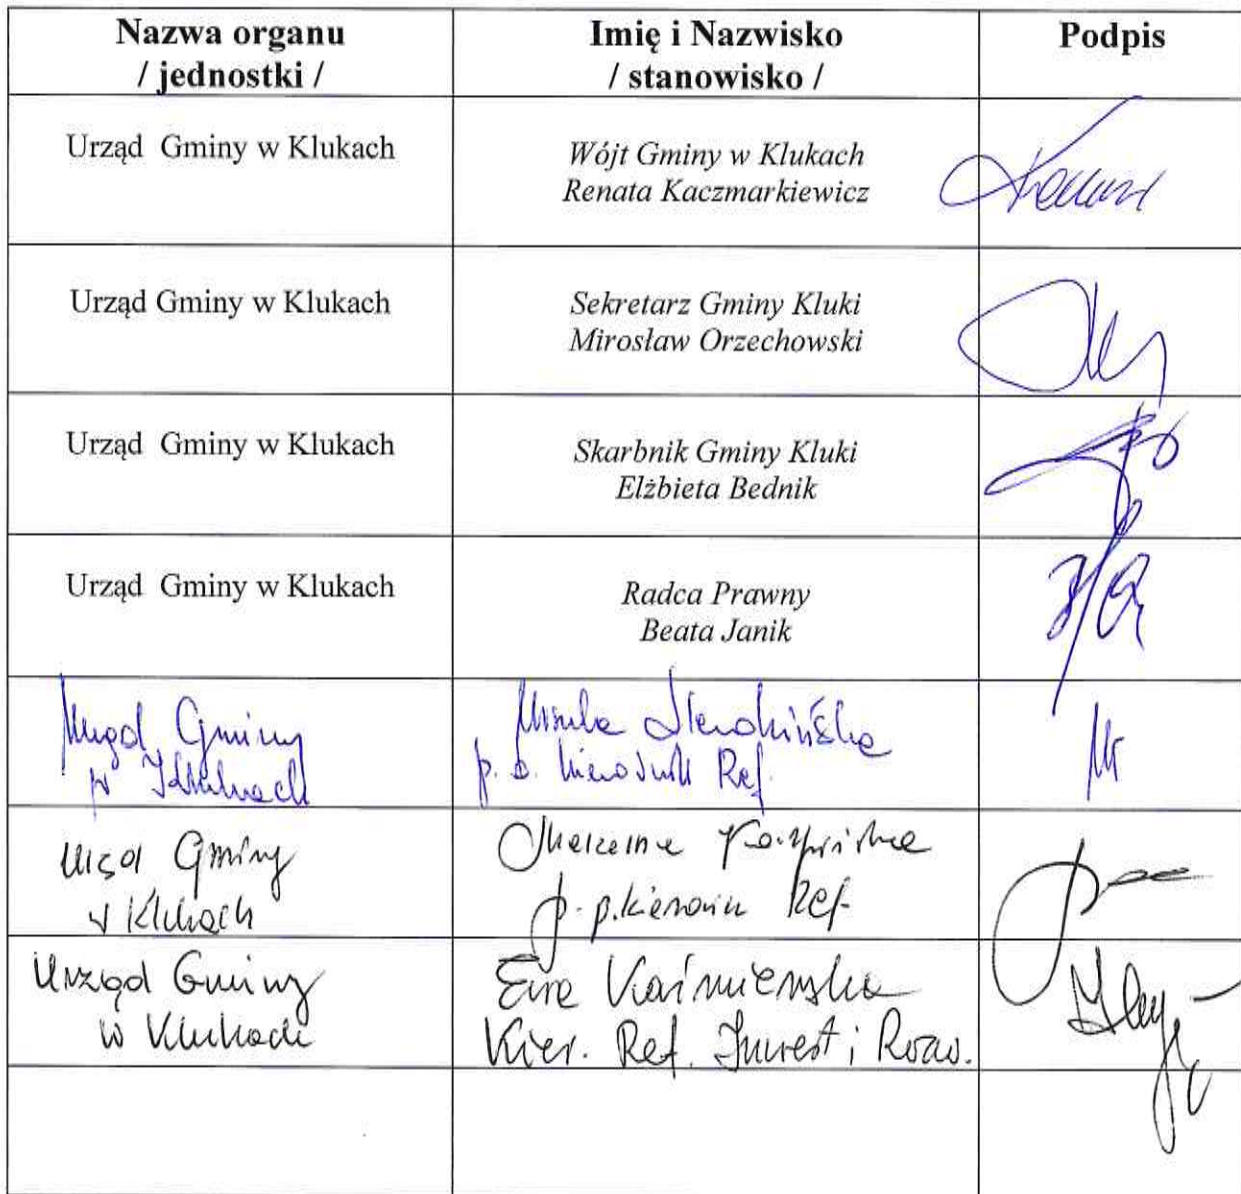 Nazwa organu
/ jednostki /
Imię i Nazwisko
/ stanowisko /
Podpis
Urząd Gminy w Klukach
Wójt Gminy w Klukach
Renata Kaczmarkiewicz
Urząd Gminy w Klukach
Sekretarz Gminy Kluki
Mirosław Orzechowski
Urząd Gminy w Klukach
Skarbnik Gminy Kluki
Elżbieta Bednik
Urząd Gminy w Klukach
Radca Prawny
Beata Janik
Urząd Gminy
w Klukach
p.o. kierownik Ref.
Urząd Gminy
w Klukach
Ref.
Urząd Gminy
w Klukach
Ewa Kaźmierska
Kier. Ref. Inwest i Rozw.